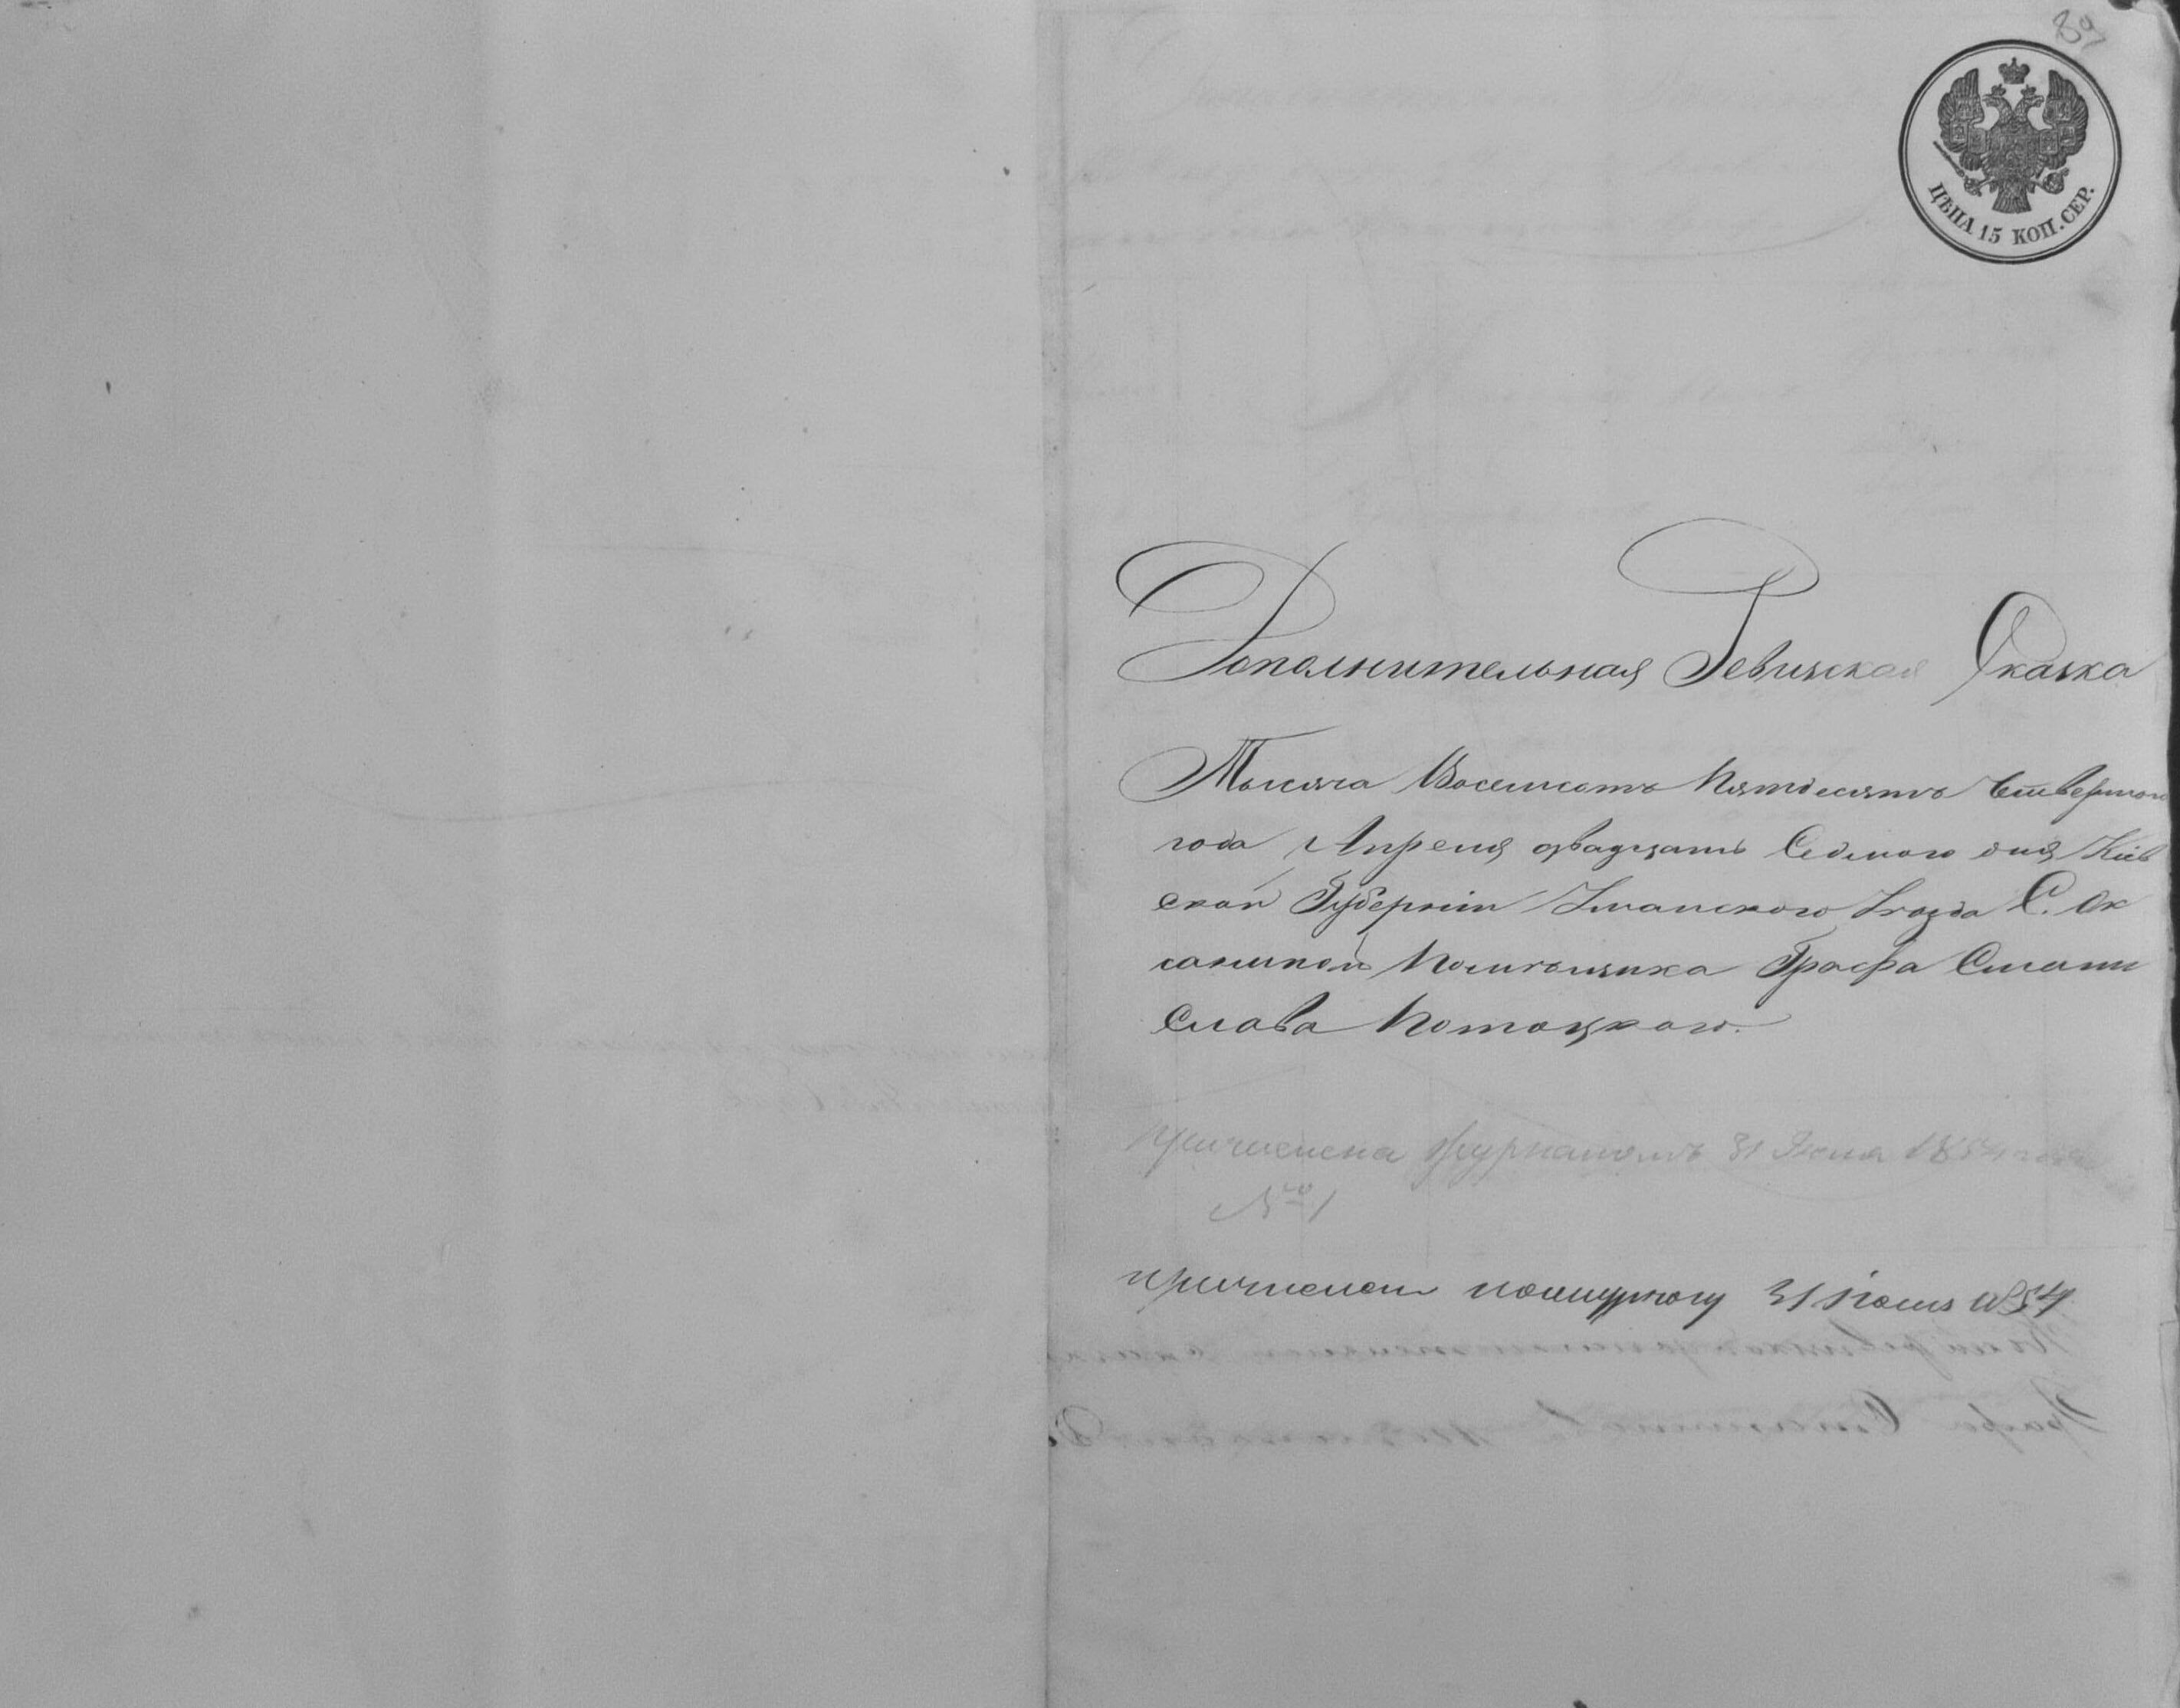 89
ЦѢНА 15 КОП. СЕР.
Дополнительная Ревизская Сказка
Тысяча Восемсотъ Пятдесятъ Четвертого
года Апреля двадцать Седмого дня Кіев
ской Губерніи Уманского Уезда С. Ок
саниной Помѣщика Графа Стани
слава Потоцкого.
причислена журналомъ 31 Іюля 1854 года
№ 1
31 Іюля 1854